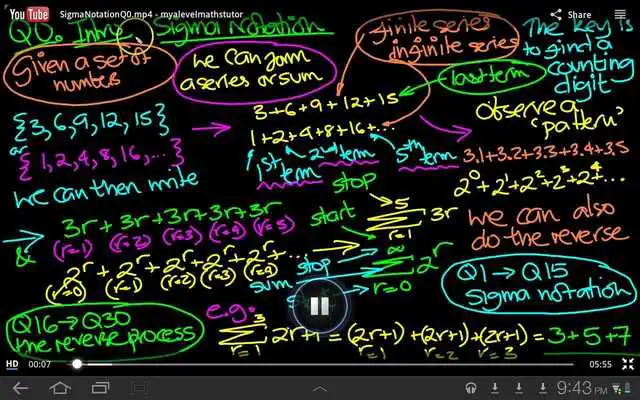 You Tube SigmaNotationQ0.mp4 - myalevelmathstutor Share
Q0. Intro Sigma Notation
Given a set of numbers
we can form a series or sum
finite series
infinite series
The key is to find a counting digit
last term
{3, 6, 9, 12, 15}
or
{1, 2, 4, 8, 16, ...}
3+6+9+12+15
1+2+4+8+16+...
1st term 2nd term 5th term
observe a 'pattern'
3.1+3.2+3.3+3.4+3.5
2^0+2^1+2^2+2^3+2^4+...
we can then write
3r + 3r + 3r + 3r + 3r
(r=1) (r=2) (r=3) (r=4) (r=5)
&
2^r + 2^r + 2^r + 2^r + 2^r + ...
(r=0) (r=1) (r=2) (r=3) (r=4)
stop
start
5
Σ 3r
r=1
stop
sum
∞
Σ 2^r
r=0
we can also do the reverse
Q1 → Q15
Sigma notation
Q16 → Q30
the reverse process
e.g.
3
Σ 2r+1 = (2r+1) + (2r+1) + (2r+1) = 3+5+7
r=1 r=1 r=2 r=3
HD 00:07 05:55
9:43 PM